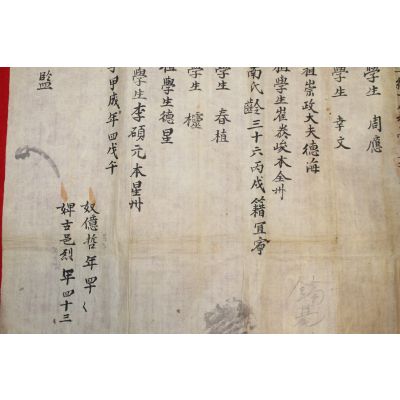 學生 周應
學生 幸文
祖崇政大夫德海
祖學生崔 峻本全州
南氏齡三十六丙戌籍宜寧
學生 春植
學生
祖學生德星
學生李碩元本星州
甲戌年四戊午
監
奴億哲年四十
婢古邑烈年四十三